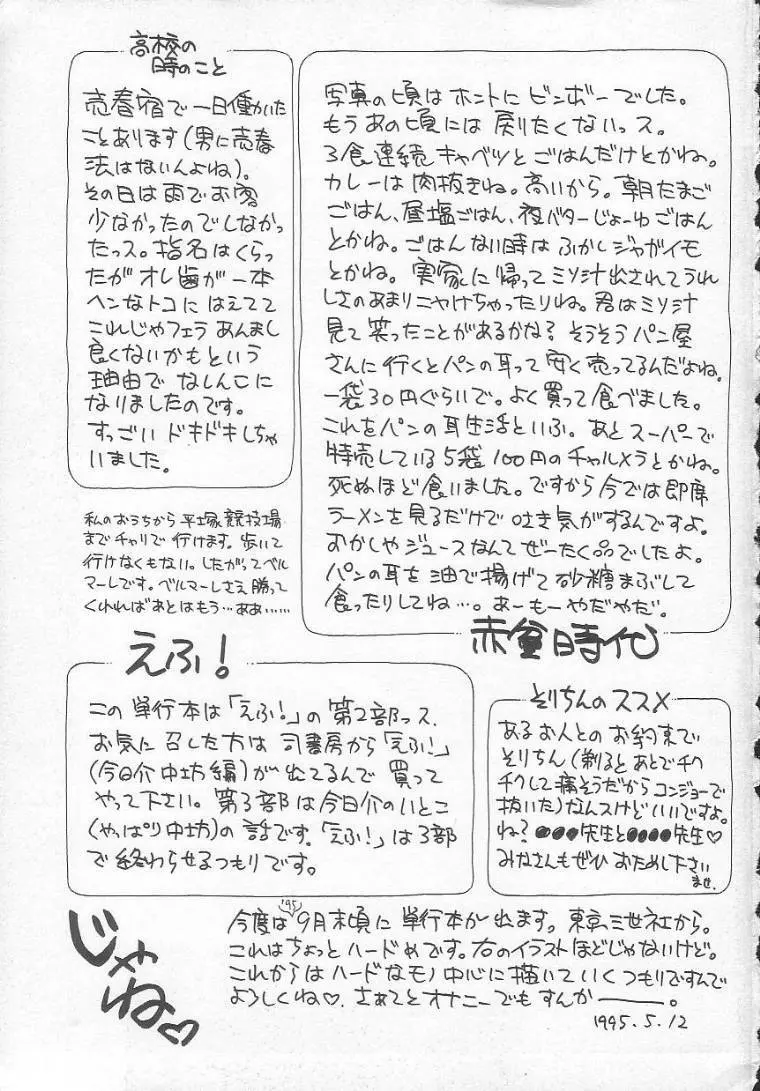 高校の
時のこと
売春宿で一日働いた
ことあります(男に売春
法はないんよね)。
その日は雨でお客
少なかったのでしなかっ
たっス。指名はくらっ
たがオレ歯が一本
ヘンなトコにはえてて
これじゃフェラあんまし
良くないかもという
理由でなしんこに
なりましたのです。
すっごいドキドキしちゃ
いました。
写真の頃はホントにビンボーでした。
もうあの頃には戻りたくないっス。
3食連続キャベツとごはんだけとかね。
カレーは肉抜きね。高いから。朝たまご
ごはん、昼塩ごはん、夜バターじょーゆごはん
とかね。ごはんない時はふかしジャガイモ
とかね。実家に帰ってミソ汁出されてうれ
しさのあまりニヤけちゃったりね。君はミソ汁
見て笑ったことがあるかな?そうそうパン屋
さんに行くとパンの耳って安く売ってるんだよね。
一袋30円ぐらいで。よく買って食べました。
これをパンの耳生活といふ。あとスーパーで
特売している5袋100円のチャルメラとかね。
死ぬほど食いました。ですから今では即席
ラーメンを見るだけで吐き気がするんですよ。
おかしやジュースなんてぜーたく品でしたよ。
パンの耳を油で揚げて砂糖まぶして
食ったりしてね…。あーもーやだやだ。
赤貧時代
私のおうちから平塚競技場
までチャリで行けます。歩いて
行けなくもない。したがってベル
マーレです。ベルマーレさえ勝って
くれればあとはもう…ああ……
えふ!
この単行本は「えふ!」の第2部っス.
お気に召した方は司書房から「えふ!」
(今日介中坊編)が出てるんで買って
やって下さい。第3部は今日介のいとこ
(やっぱり中坊)の話です。「えふ!」は3部
で終わらせるつもりです。
そりちんのススメ
あるお人とのお約束で
そりちん(剃るとあとでチク
チクして痛そうだからコンジョーで
抜いた)なんスけどいいですよ。
ね?●●●先生と●●●●先生♡
みなさんもぜひおためし下さい
ませ.
じゃ
ね♡
今度は'95 9月末頃に単行本が出ます。東京三世社から。
これはちょっとハードめです。右のイラストほどじゃないけど。
これからはハードなモノ中心に描いていくつもりですんで
よろしくね♡. さぁてとオナニーでもすんかー。
1995.5.12